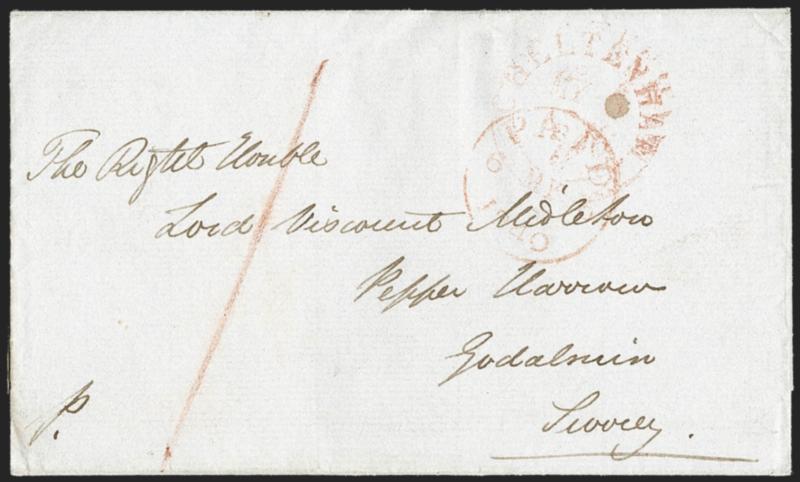 CHELTENHAM
PAID
The Right Honble
Lord Viscount Midleton
Pepper Harrow
Godalmin
Surrey.
P.
1